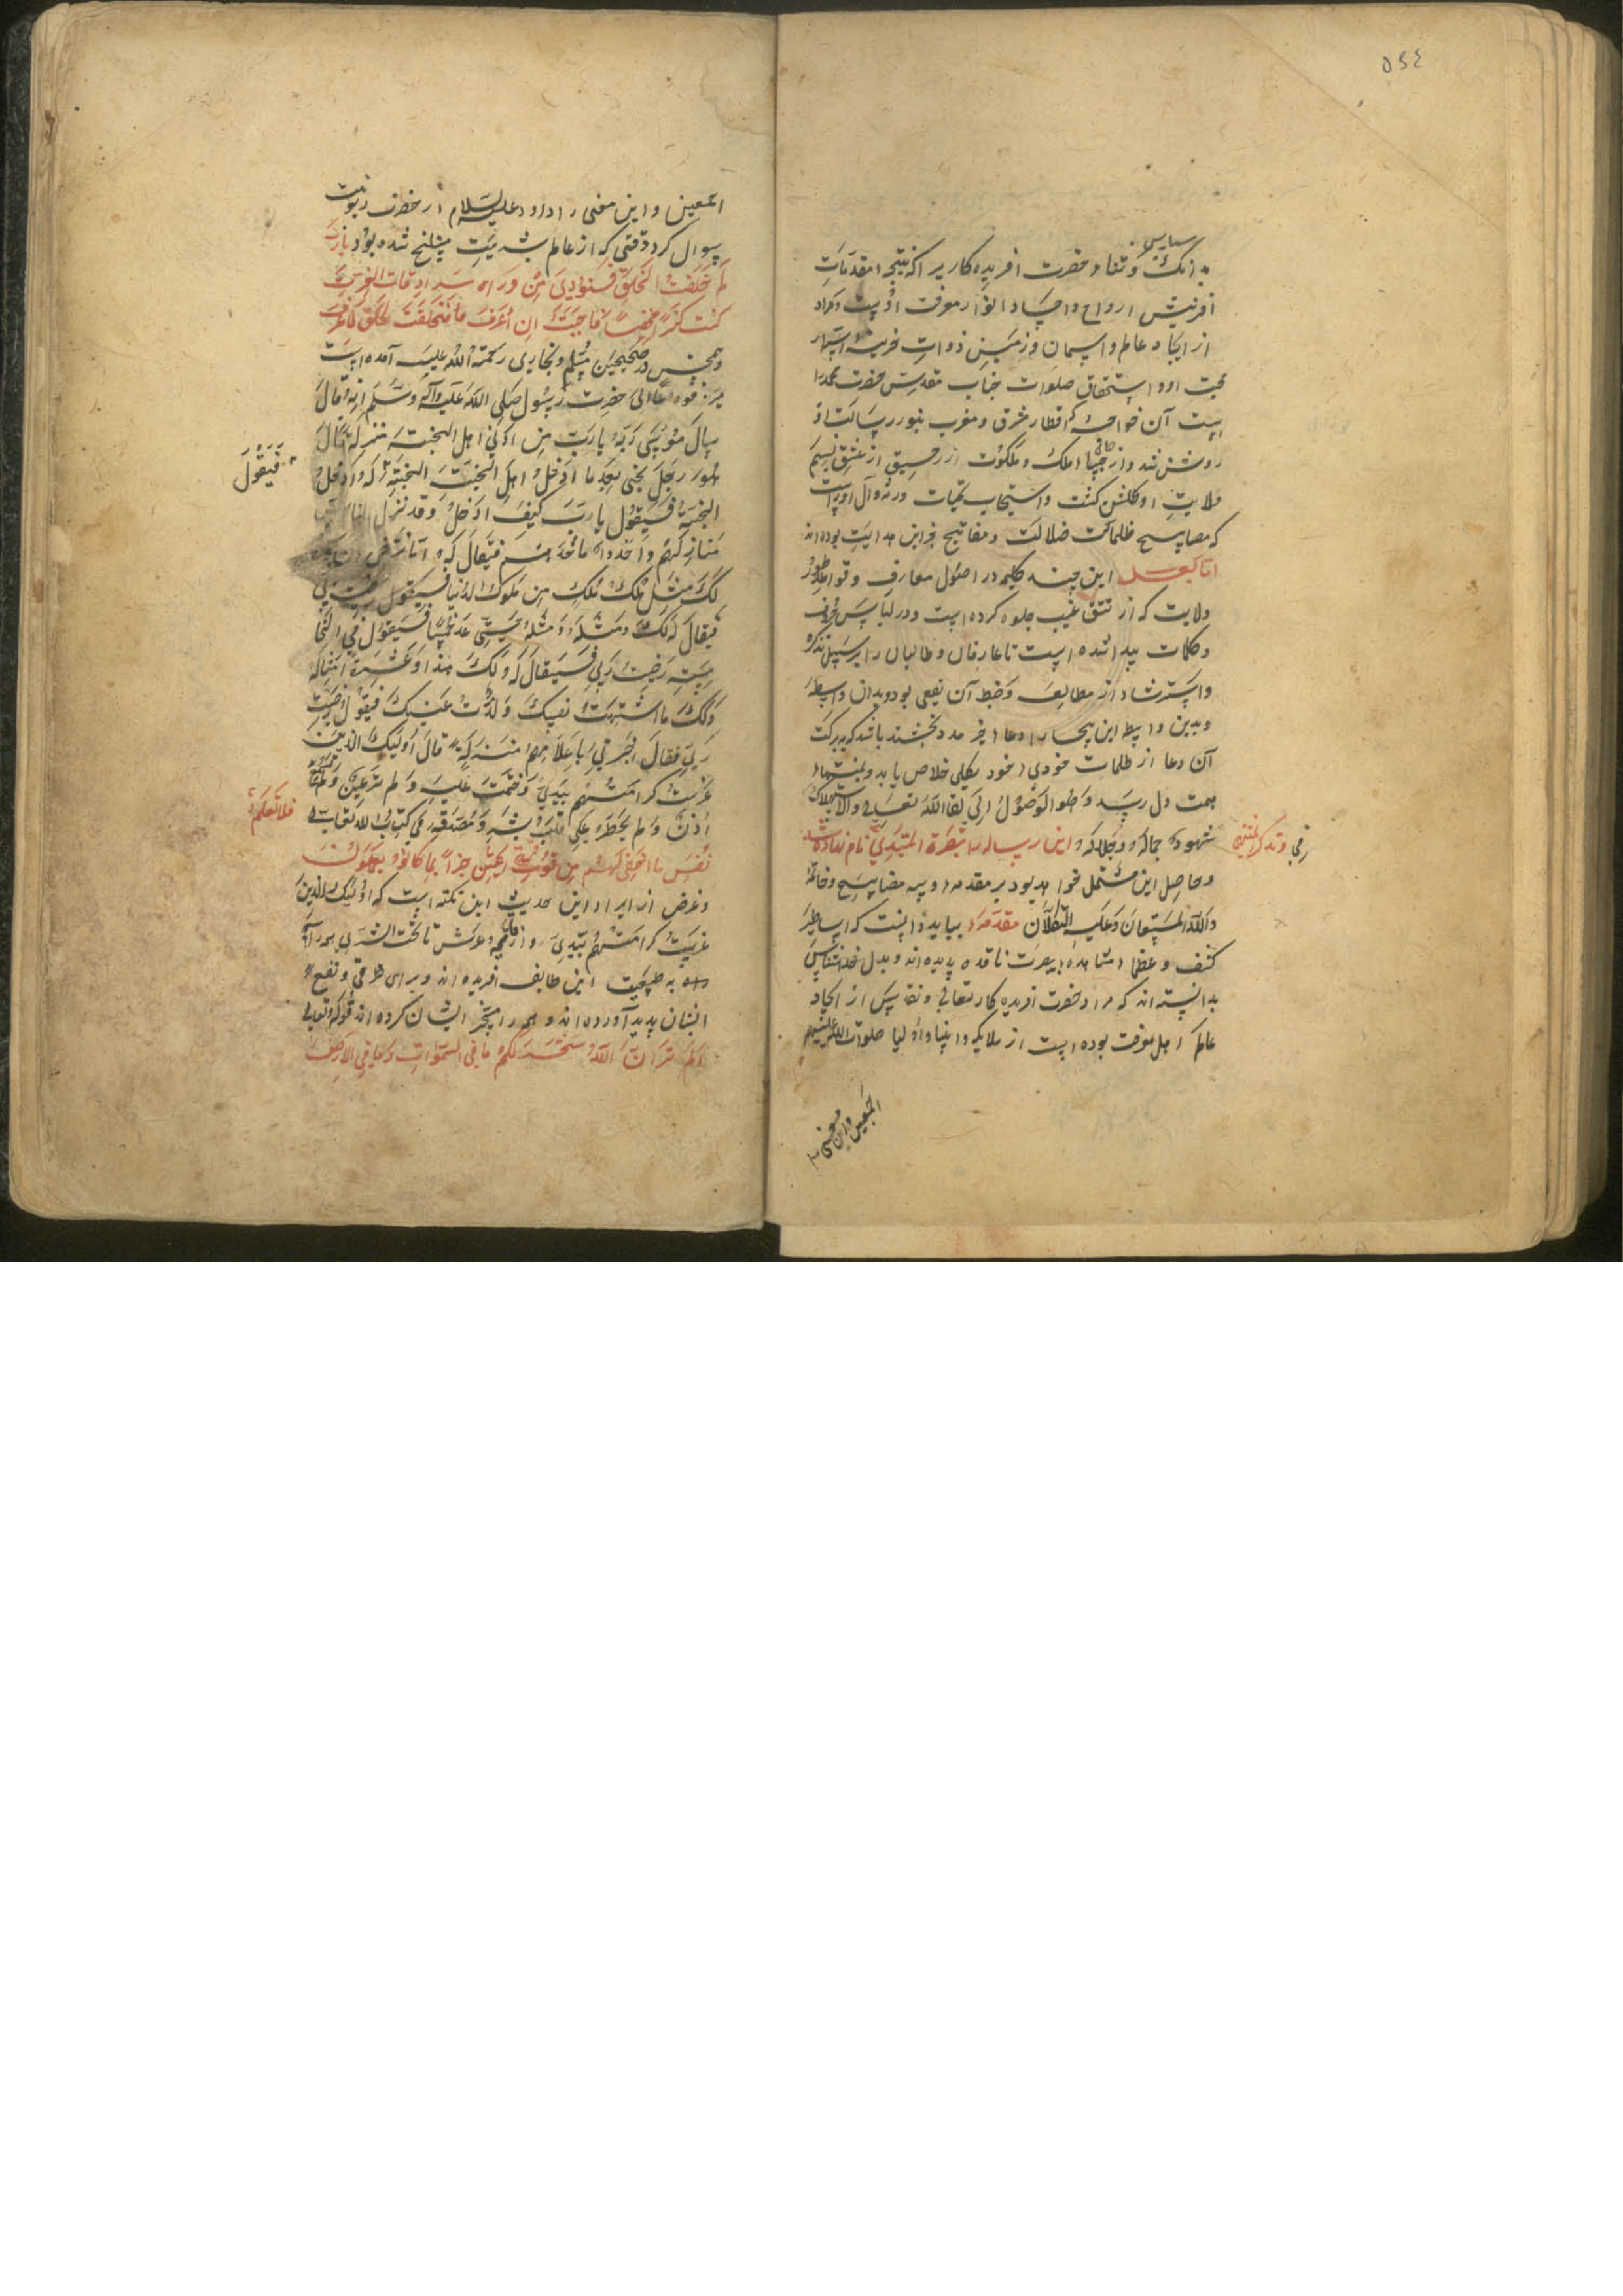 ٥٤٤
سپاس
بدانک و ثناء حضرت افریده کاریرا که نتیجه مقدمات
افرنیش ارواح و اجساد انوار معرفت اوست و مراد
از ایجاد عالم و اسمان و زمین ذوات خزینه اسرار
محبت او و استحقاق صلوات جناب مقدس حضرت محمد را
است آن خواجه که اقطار مشرق و مغرب بنور رسالت او
روشن شد و ازجای ملک و ملکوت از رحیق از عشق نسیم
ولایت او گلشن گشت و استیجاب تحیات ورثه و آل او راست
که مصابیح ظلمات ضلالت و مفاتیح خزاین هدایت بوده اند
اما بعد این چند کلمه در اصول معارف و قواعد طور
ولایت که از تتق غیب جلوه کرده است و در لباس حروف
و کلمات پیدا شده است تا عارفان و طالبان را بر سبیل تذکره
و استرشاد از مطالعه و ضبط آن نفعی بود و بدان واسطه
و بدین واسطه این بیچاره را دعاء خیر مدد بخشند باشد که ببرکت
آن دعا از ظلمات خودی خود بکلی خلاص یابد و بمنتهاء
همت دل رسد و هو الوصول الی لقاء الله تعالی و الاستهلاک
فی شهود جماله و جلاله و این رساله را تبصرة المبتدی نام نهاده شد
و تذکرة المنتهی
و حاصل این مشتمل خواهد بود بر مقدمه و سه مصابیح و خاتمه
والله المستعان و علیه التکلان مقدمه بباید دانست که اساطین
کشف و عظماء مشاهده ببصیرت ناقده دیده اند و بدل خداشناس
بدانسته اند که مراد حضرت افریده کار تعالی و تقدس از ایجاد
عالم اهل معرفت بوده است از ملایکه و انبیا و اولیا صلوات الله علیهم
اجمعین و این معنی را
اجمعین و این معنی را داود علیه السلام از حضرت ربوبیت
سوال کرد وقتی که از عالم بشریت منسلخ شده بود یا رب
لم خلقت الخلق فنودی من وراء سرادقات العزت
کنت کنزا مخفیا فاحببت ان اعرف فخلقت الخلق لاعرف
و همچنین در صحیحین مسلم و بخاری رحمة الله علیه آمده است
مرفوعا الی حضرت رسول صلی الله علیه وآله وسلم انه قال
سال موسی ربه یا رب من ادنی اهل الجنة منزلة قال
هو رجل یجئ بعد ما ادخل اهل الجنة الجنة فیقول له ادخل
فیقول
الجنة فیقول یا رب کیف ادخل و قد نزل الناس
منازلهم و اخذوا ما اخذ فیقال له اما ترضی ان یکون
لک مثل ملک ملک من ملوک الدنیا فیقول رضیت ربی
فیقال له لک و مثله و مثله حتی عد خمسا فیقول فی الخا
مسة رضیت ربی فیقال له لک هذا و عشرة امثاله
و لک ما اشتهت نفسک و لذت عینک فیقول رضیت
ربی فقال اخبرنی باعلاهم منزلة قال اولیک الذین
غرست کرامتهم بیدی و ختمت علیه و لم تر عین و لم تسمع
اذن و لم یخطر علی قلب بشر و مصدقه فی کتاب الله تعالی
فلا تعلم
نفس ما اخفی لهم من قرة اعین جزاء بما کانوا یعملون
و غرض از ایراد این حدیث این نکته است که اولیک الذین
غرست کرامتهم بیدی و از قمه عرش تا تحت الثری همه را
به طفیلیت این طایفه افریده اند و برای ترقی و نفع
ایشان پدید آورده اند و همه را مسخر ایشان کرده اند قوله تعالی
الم تر ان الله سخر لکم ما فی السموات و ما فی الارض